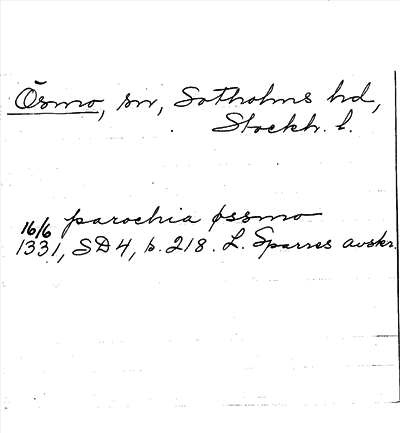 Ösmo, sn, Sotholms hd,
Stockh. l.
16/6 parochia øssmo
1331, SD4, s. 218. L. Sparres avskr.